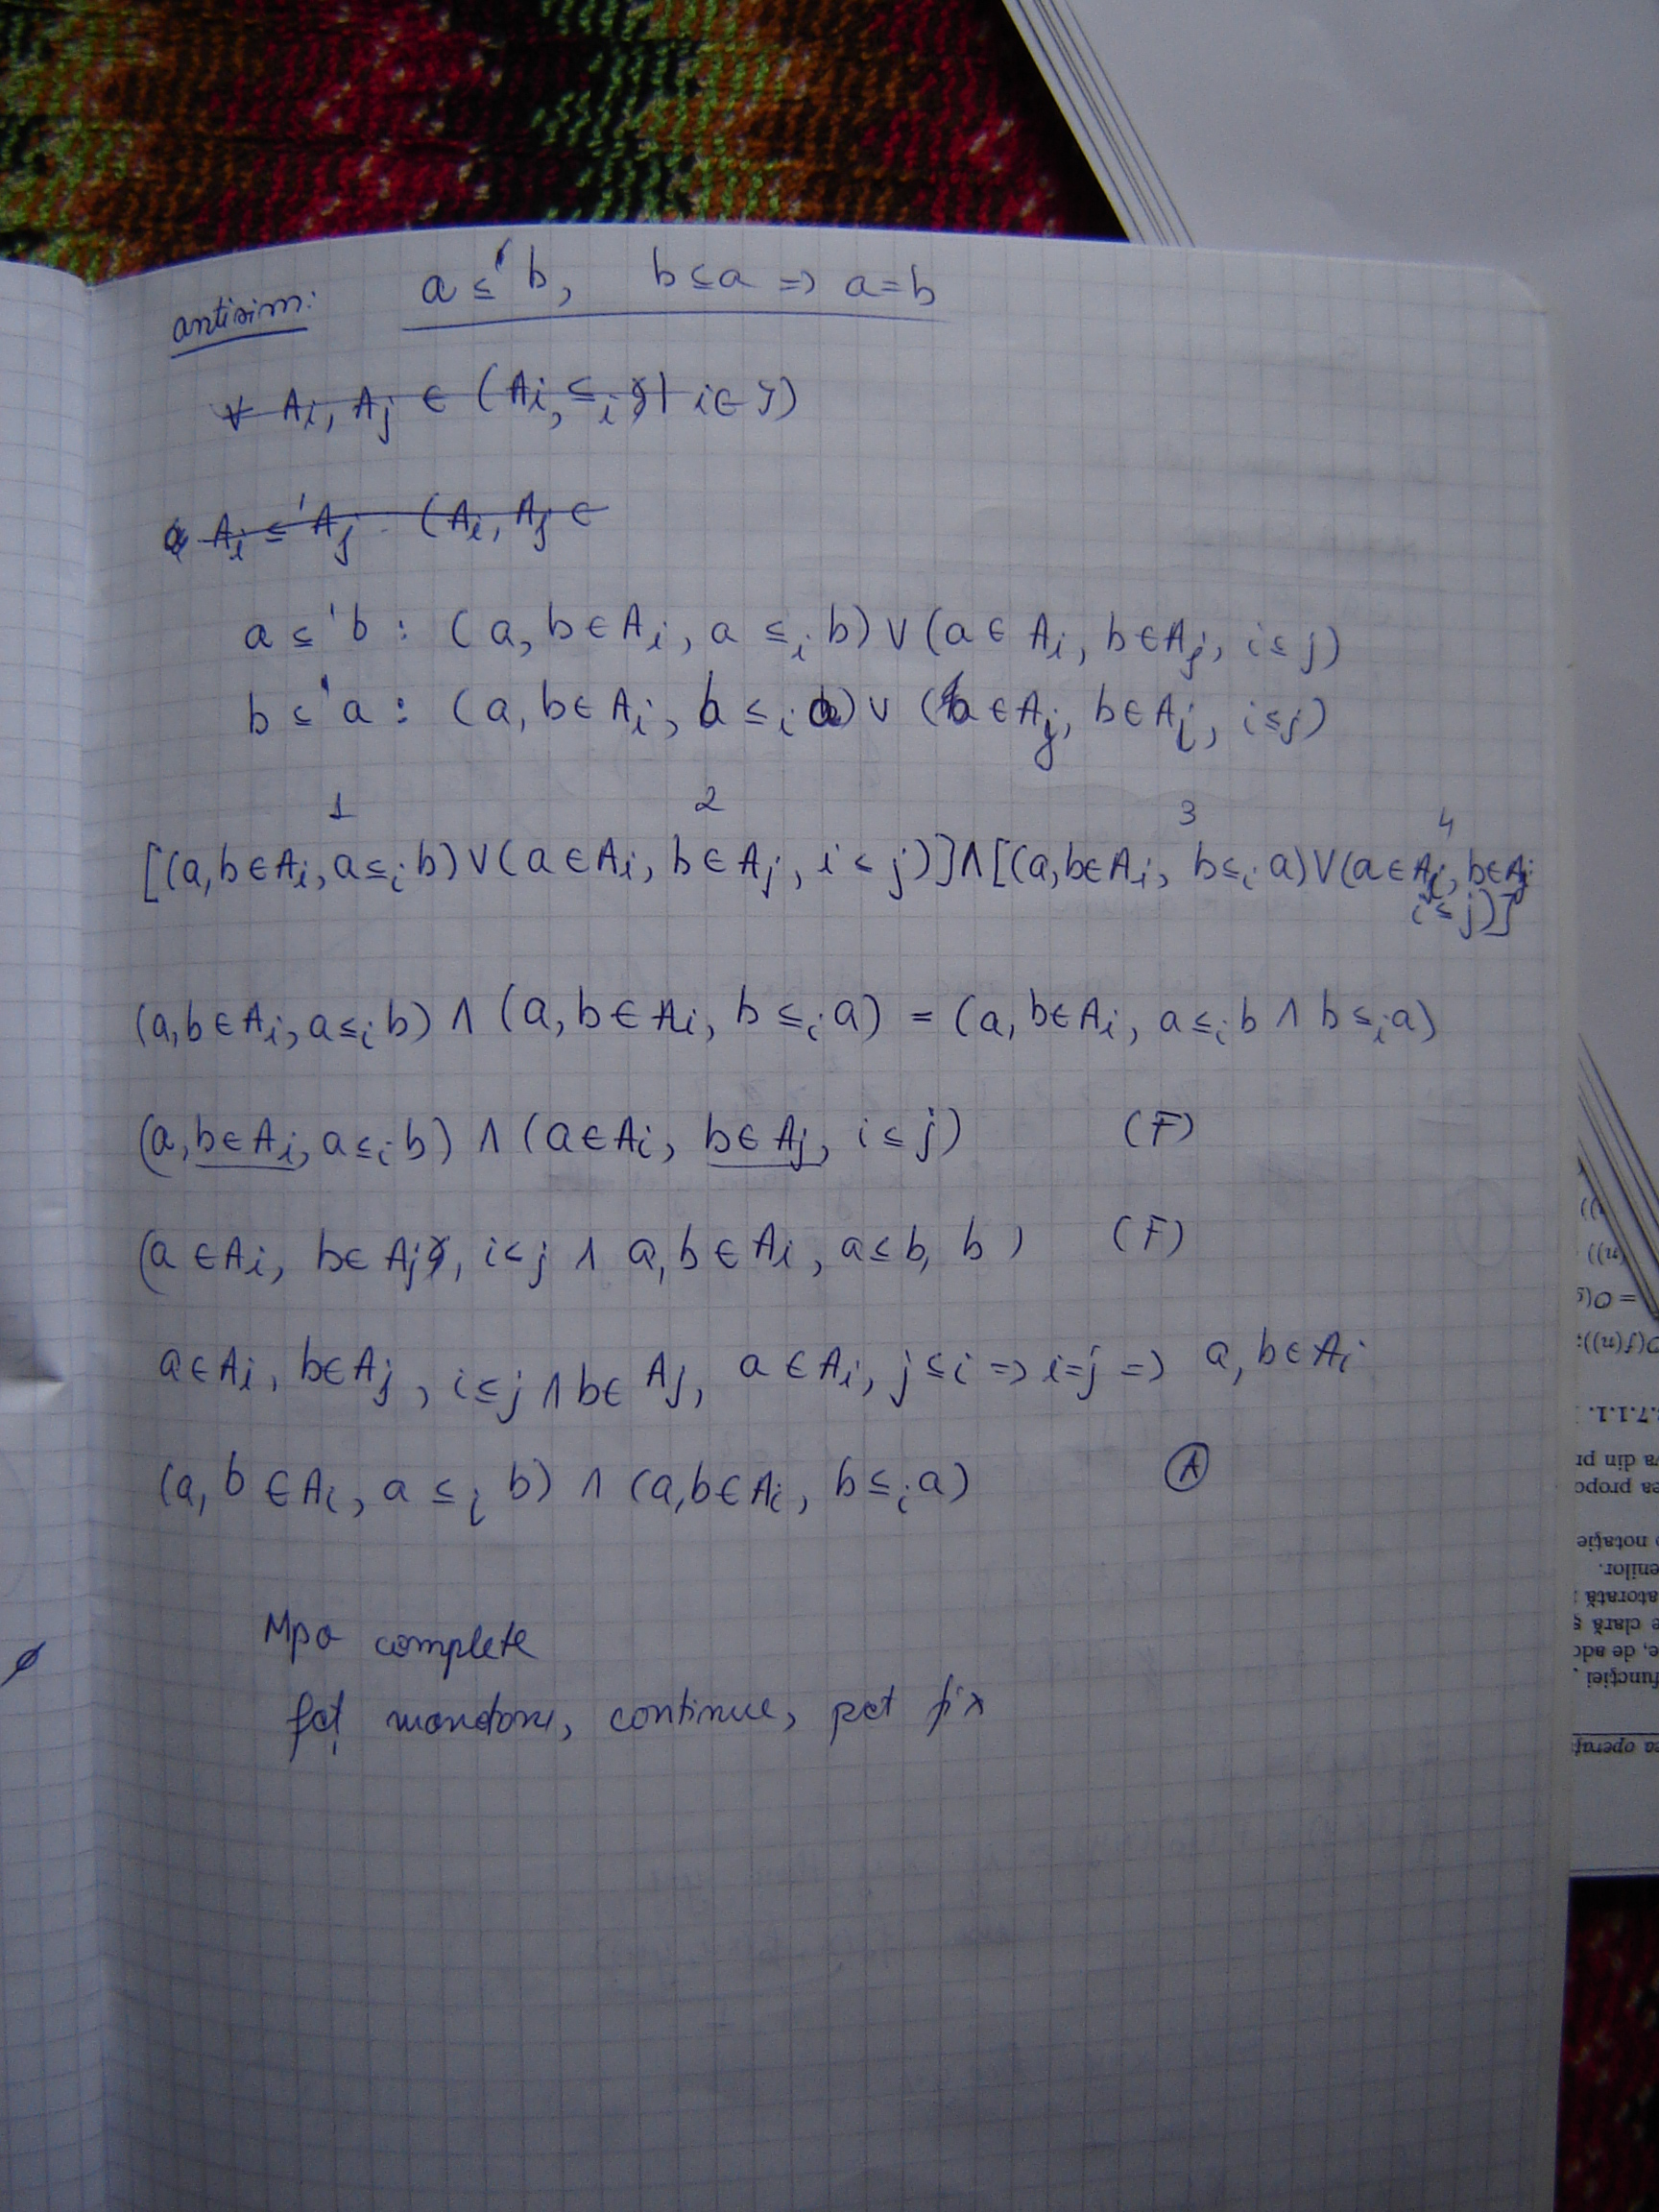 antisim: a ≤' b, b ≤ a => a = b
∀ Ai, Aj ∈ (Ai, ≤i)| i∈I)
a Ai ≤' Aj (Ai, Aj ∈
a ≤' b : (a, b ∈ Ai, a ≤i b) ∨ (a ∈ Ai, b ∈ Aj, i ≤ j)
b ≤' a : (a, b ∈ Ai, b ≤i a) ∨ (a ∈ Aj, b ∈ Ai, i ≤ j)
1 2 3 4
[(a,b ∈ Ai, a ≤i b) ∨ (a ∈ Ai, b ∈ Aj, i < j)] ∧ [(a,b ∈ Ai, b ≤i a) ∨ (a ∈ Ai, b ∈ Aj
i ≤ j)]
(a,b ∈ Ai, a ≤i b) ∧ (a, b ∈ Ai, b ≤i a) = (a, b ∈ Ai, a ≤i b ∧ b ≤i a)
(a, b ∈ Ai, a ≤i b) ∧ (a ∈ Ai, b ∈ Aj, i ≤ j) (F)
(a ∈ Ai, b ∈ Aj, i < j ∧ a, b ∈ Ai, a ≤ b, b ) (F)
a ∈ Ai, b ∈ Aj, i ≤ j ∧ b ∈ Aj, a ∈ Ai, j ≤ i => i=j => a, b ∈ Ai
(a, b ∈ Ai, a ≤i b) ∧ (a,b ∈ Ai, b ≤i a) A
Mpo complete
fct monotone, continue, pct fix
((n))
= O(g
O(f(n)):
.7.1.1.
va din pr
ea propo
o notaţie
enilor.
atorată
e clară ş
e, de adc
funcţiei
ea operaţ